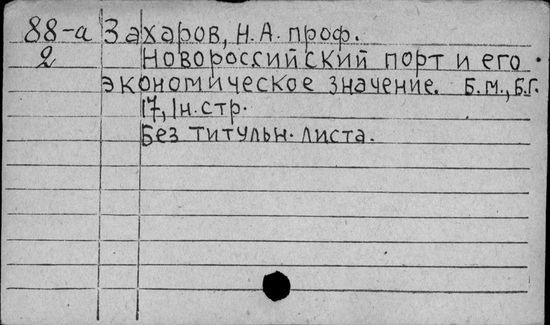 88-а Захаров, Н.А. проф.
2 Новороссийский порт и его
экономическое значение. Б.м., Б.г.
17, 1н. стр.
Без титульн. листа.